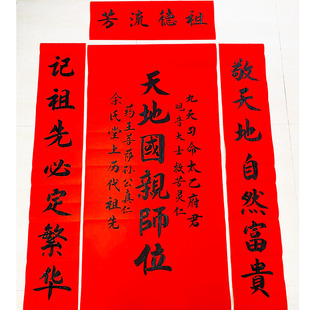 祖德流芳
敬天地自然富貴
九天司命太乙府君
观音大士救苦灵仁
天地國親師位
药王菩萨孙公真仁
余氏堂上历代祖先
记祖先必定繁华